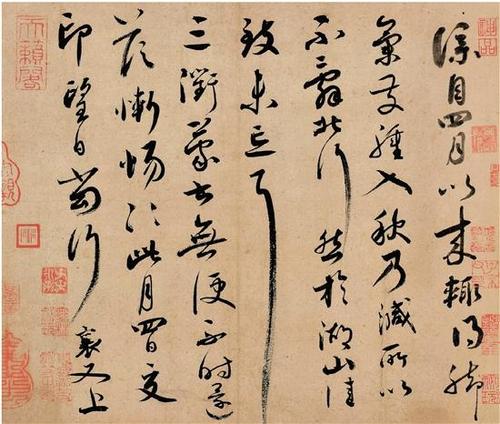 僕自四月以来輒得脚
氣發腫入秋乃減所以
不辞北行然於湖山佳
致未忘耳
三衢蒙書無便不時還
答慚惕〻此月四日交
印望日當行 襄又上
神品
天籟閣